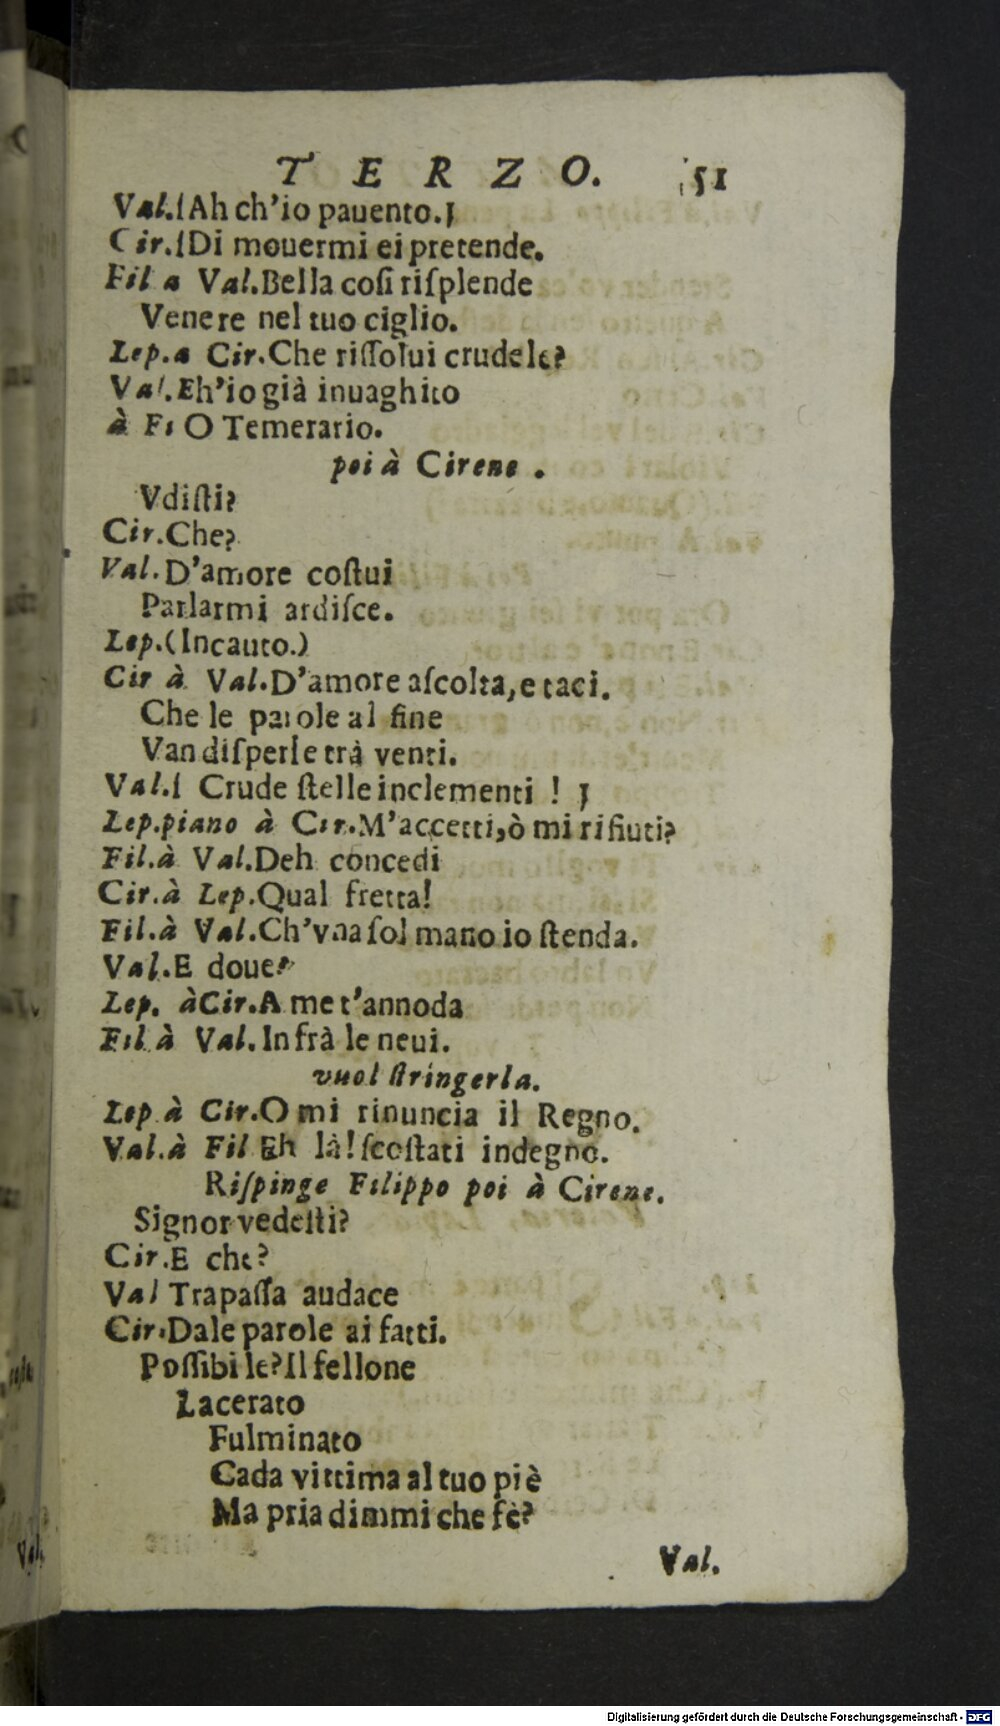 TERZO. 51
Val.[Ah ch'io pauento.]
Cir.[Di mouermi ei pretende.
Fil a Val.Bella cosi risplende
Venere nel tuo ciglio.
Lep.a Cir.Che rissolui crudele?
Val.Eh'io già inuaghito
à Fi O Temerario.
poi à Cirene.
Vdisti?
Cir.Che?
Val.D'amore costui
Parlarmi ardisce.
Lep.(Incauto.)
Cir à Val.D'amore ascolta, e taci.
Che le parole al fine
Van disperse trà venti.
Val.[ Crude stelle inclementi ! ]
Lep.piano à Cir.M'accetti,ò mi rifiuti?
Fil.à Val.Deh concedi
Cir.à Lep.Qual fretta!
Fil.à Val.Ch'vna sol mano io stenda.
Val.E doue?
Lep. àCir.A me t'annoda
Fil à Val.In frà le neui.
vuol stringerla.
Lep à Cir.O mi rinuncia il Regno.
Val.à Fil Eh là! scostati indegno.
Rispinge Filippo poi à Cirene.
Signor vedesti?
Cir.E che?
Val Trapassa audace
Cir.Dale parole ai fatti.
Possibile? Il fellone
Lacerato
Fulminato
Cada vittima al tuo piè
Ma pria dimmi che fè?
Val.
Digitalisierung gefördert durch die Deutsche Forschungsgemeinschaft - DFG